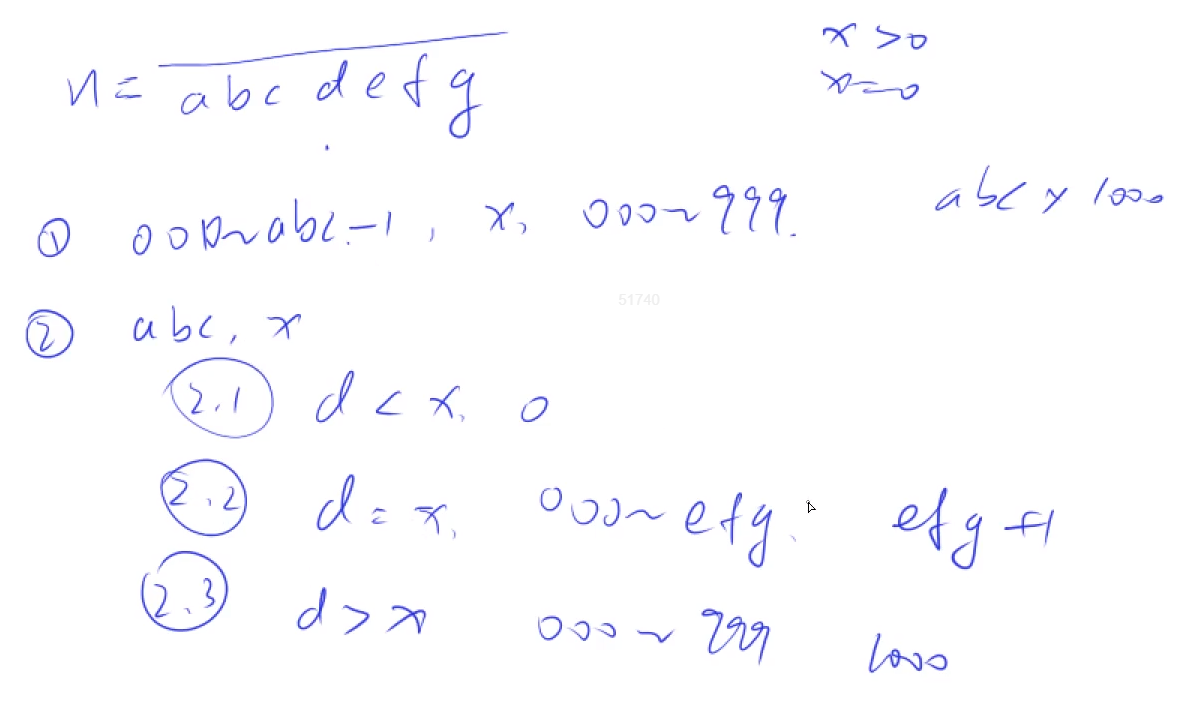 n = abcdefg
x > 0
x = 0
① 000~abc-1, x, 000~999.
abc x 1000
51740
② abc, x
2.1 d < x, 0
2.2 d = x, 000~efg. efg+1
2.3 d > x 000~999 1000